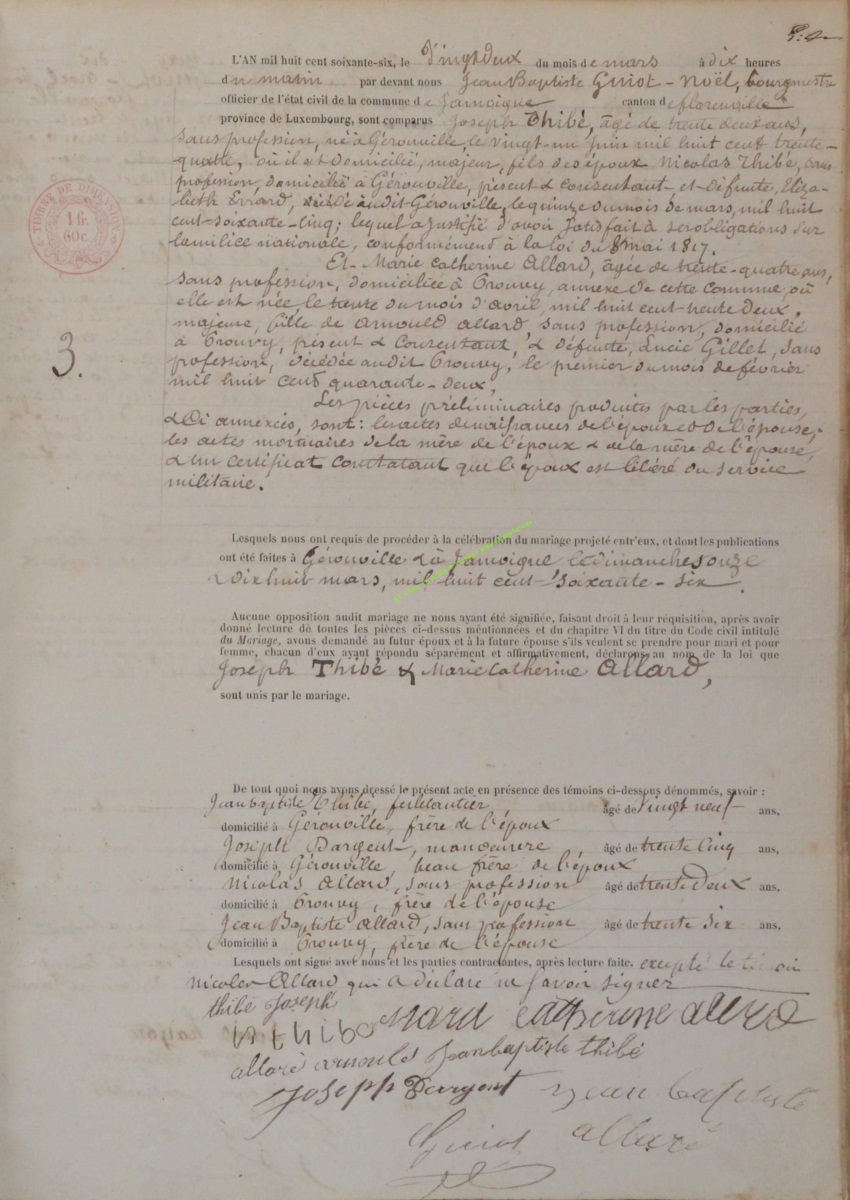 L'AN mil huit cent soixante-six, le Vingt deux du mois de mars à dix heures
du matin par devant nous Jean Baptiste Guiot-Noël, bourgmestre
officier de l'état civil de la commune de Jamoigne canton de florenville
province de Luxembourg, sont comparus Joseph Thibé, âgé de trente deux ans,
sans profession, né à Gérouville, le vingt-un juin mil huit cent trente-
quatre, où il est domicilié, majeur, fils des époux Nicolas Thibé, sans
profession, domicilié à Gérouville, présent & consentant et défunte, Eliza-
beth Errard, décédée audit Gérouville, le quinze du mois de mars, mil huit
cent-soixante-cinq; lequel a justifié d'avoir satisfait à ses obligations sur
la milice nationale, conformément à la loi du 8 mai 1817.
Et Marie Catherine Allard, âgée de trente-quatre ans,
sans profession, domiciliée à Prouvy, annexe de cette commune, où
elle est née, le trente du mois d'avril, mil huit cent-trente deux,
majeure, fille de Arnould Allard, sans profession, domicilié
à Prouvy, présent & consentant, & défunte, Lucie Gillet, sans
profession, décédée audit Prouvy, le premier du mois de février
mil huit cent quarante-deux,
3.
Les pièces préliminaires produites par les parties,
& ci annexées, sont: les actes de naissances de l'époux et de l'épouse,
les actes mortuaires de la mère de l'époux & de la mère de l'épouse,
& un certificat constatant que l'époux est libéré du service
militaire.
TIMBRE DE DIMENSION
1 fr.
60 c.
Lesquels nous ont requis de procéder à la célébration du mariage projeté entr'eux, et dont les publications
ont été faites à Gérouville & à Jamoigne les dimanches onze
& dix huit mars, mil huit cent soixante-six.
Aucune opposition audit mariage ne nous ayant été signifiée, faisant droit à leur réquisition, après avoir
donné lecture de toutes les pièces ci-dessus mentionnées et du chapitre VI du titre du Code civil intitulé
du Mariage, avons demandé au futur époux et à la future épouse s'ils veulent se prendre pour mari et pour
femme, chacun d'eux ayant répondu séparément et affirmativement, déclarons au nom de la loi que
Joseph Thibé & Marie Catherine Allard,
sont unis par le mariage.
De tout quoi nous avons dressé le présent acte en présence des témoins ci-dessous dénommés, savoir :
Jean baptiste Thibé, ferblantier, âgé de vingt neuf ans,
domicilié à Gérouville, frère de l'époux
Joseph Dargent, manoeuvre, âgé de trente cinq ans,
domicilié à Gérouville, beau frère de l'époux
Nicolas Allard, sans profession âgé de trente deux ans,
domicilié à Prouvy, frère de l'épouse
Jean Baptiste Allard, sans profession âgé de trente six ans,
domicilié à Prouvy, frère de l'épouse
Lesquels ont signé avec nous et les parties contractantes, après lecture faite. excepté le témoin
Nicolas Allard qui a déclaré ne savoir signer
thibé Joseph
N thibe Mari catherine allard
allard arnould Jean baptiste thibé
Joseph Dargent Jean baptiste
Guiot allard